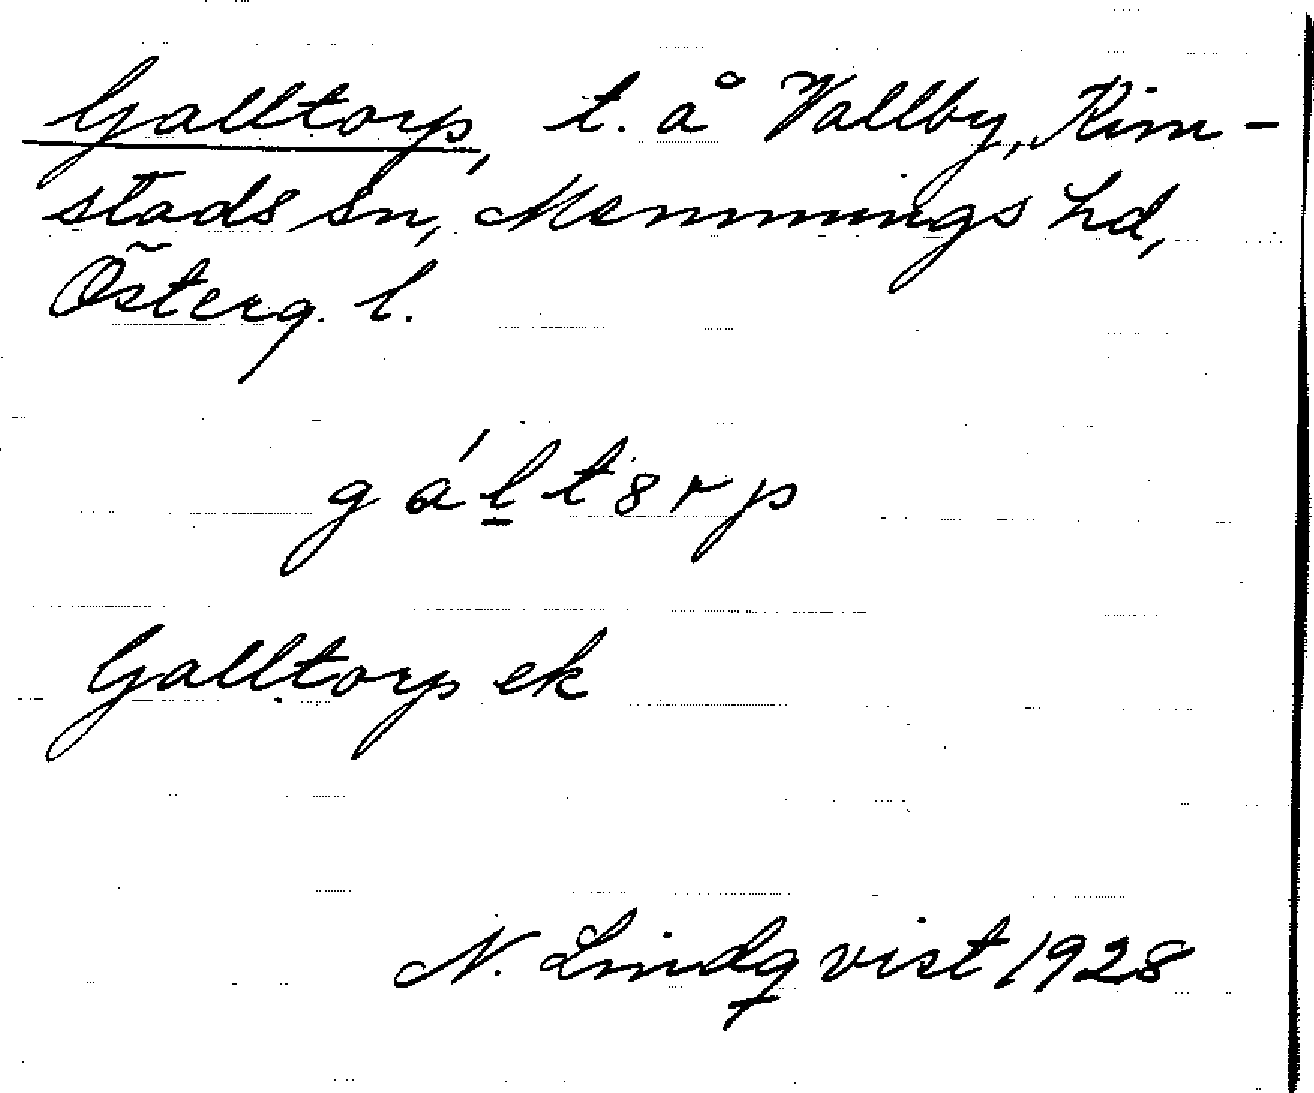 Galltorp, t. å Vallby, Kim-
stads sn, Memmings hd,
Österg. l.
gáḻt8rp
Galltorp ek
N. Lindqvist 1928